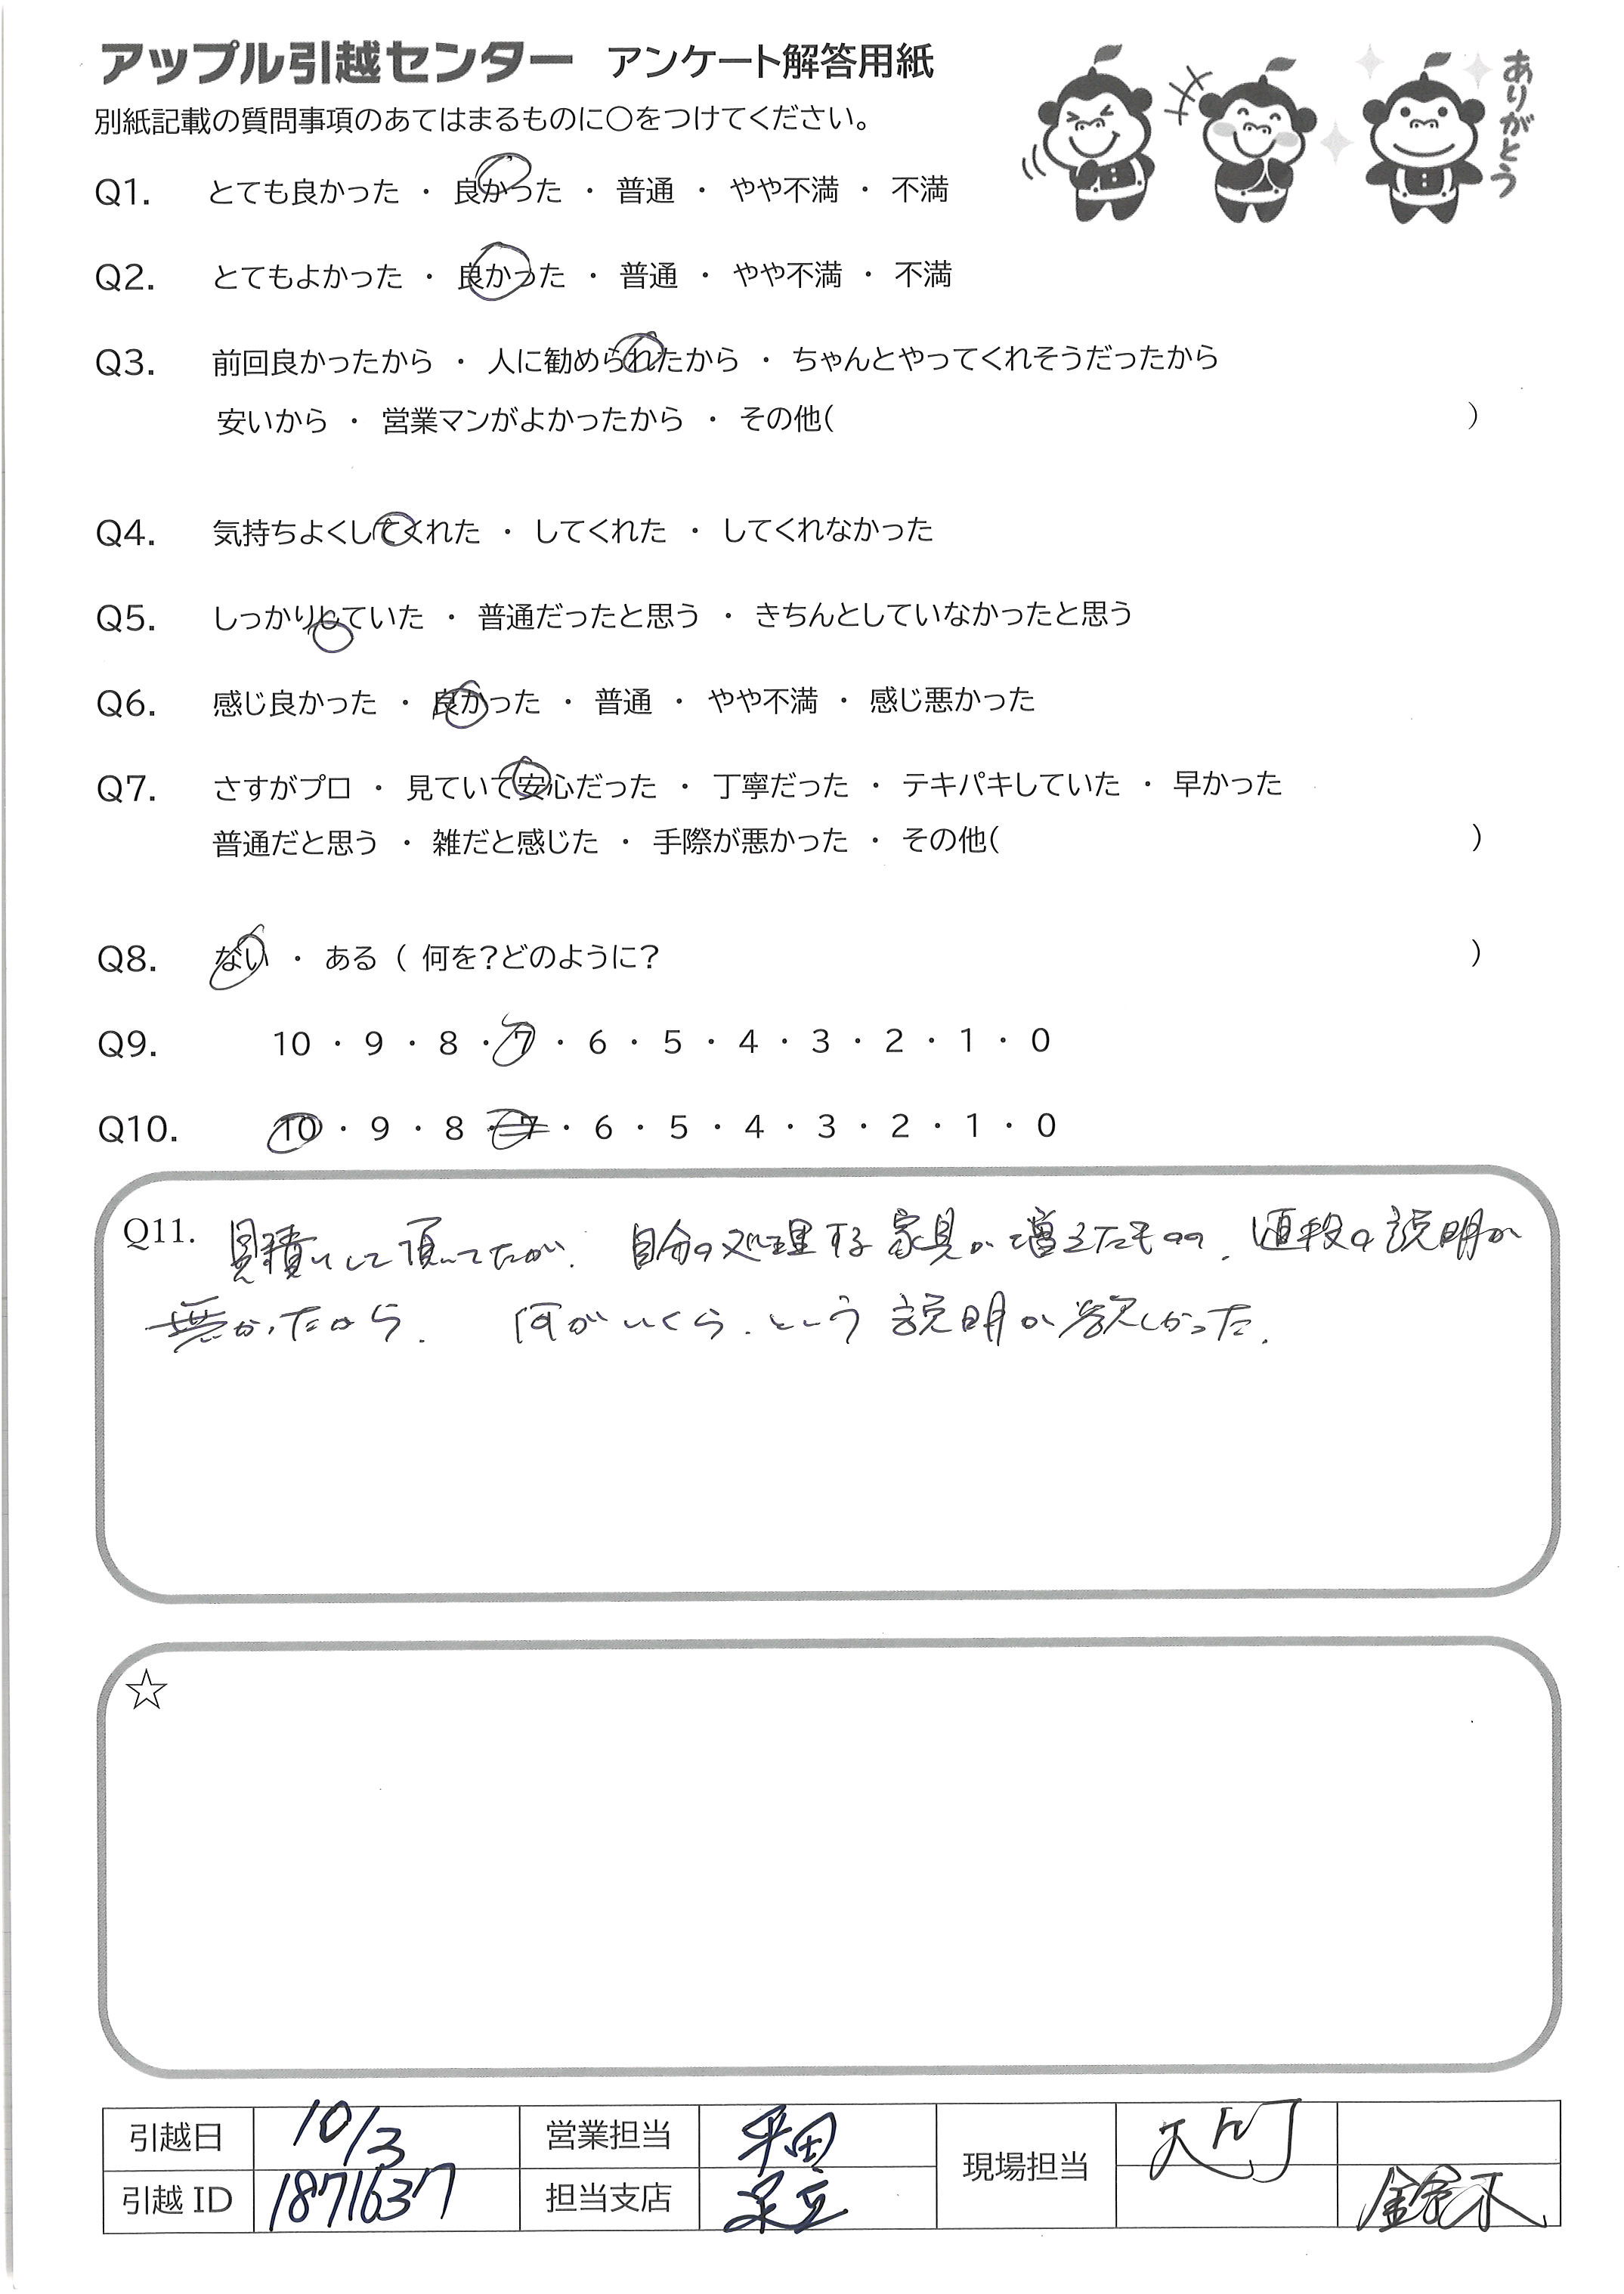 アップル引越センター アンケート解答用紙
別紙記載の質問事項のあてはまるものに○をつけてください。
ありがとう
Q1. とても良かった ・ 良かった ・ 普通 ・ やや不満 ・ 不満
Q2. とてもよかった ・ 良かった ・ 普通 ・ やや不満 ・ 不満
Q3. 前回良かったから ・ 人に勧められたから ・ ちゃんとやってくれそうだったから
安いから ・ 営業マンがよかったから ・ その他( )
Q4. 気持ちよくしてくれた ・ してくれた ・ してくれなかった
Q5. しっかりしていた ・ 普通だったと思う ・ きちんとしていなかったと思う
Q6. 感じ良かった ・ 良かった ・ 普通 ・ やや不満 ・ 感じ悪かった
Q7. さすがプロ ・ 見ていて安心だった ・ 丁寧だった ・ テキパキしていた ・ 早かった
普通だと思う ・ 雑だと感じた ・ 手際が悪かった ・ その他( )
Q8. ない ・ ある ( 何を?どのように? )
Q9. 10 ・ 9 ・ 8 ・ 7 ・ 6 ・ 5 ・ 4 ・ 3 ・ 2 ・ 1 ・ 0
Q10. 10 ・ 9 ・ 8 ・ 7 ・ 6 ・ 5 ・ 4 ・ 3 ・ 2 ・ 1 ・ 0
Q11. 見積りして頂いてたが、自分の処理する家具が増えたものの、値段の説明が
無かったから、何がいくら、という説明が欲しかった。
☆
引越日 10/3 営業担当 平田 現場担当
引越 ID 1871637 担当支店 足立 鈴木